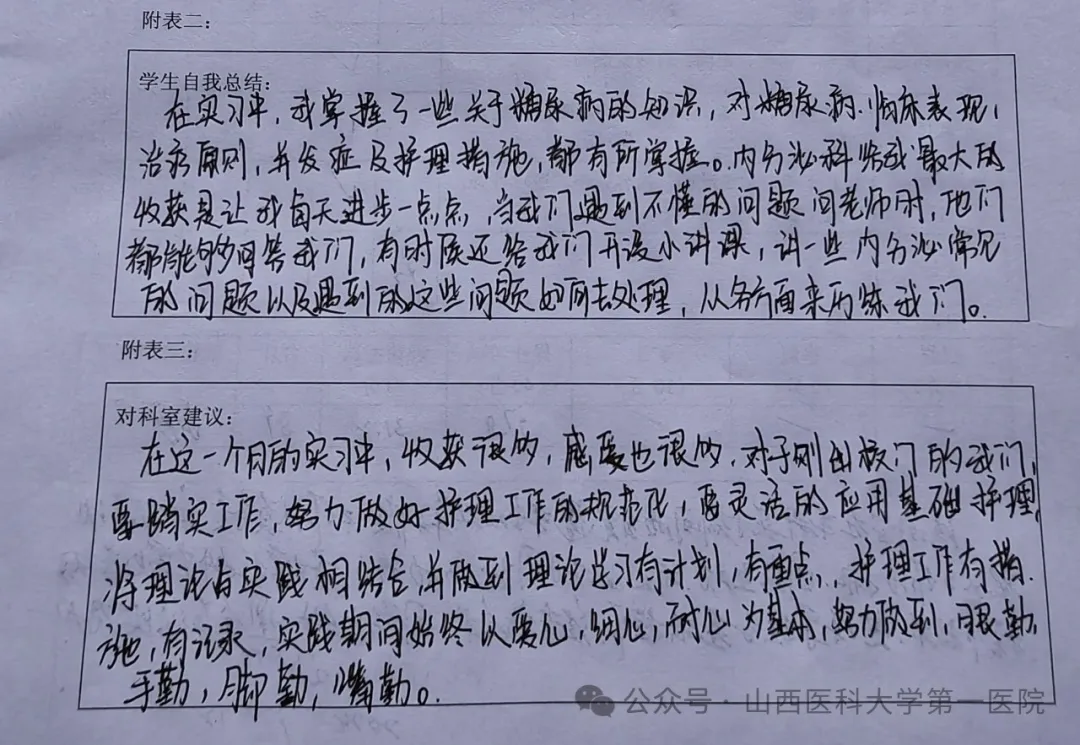 附表二：
学生自我总结：
在实习中，我掌握了一些关于糖尿病的知识，对糖尿病.临床表现，
治疗原则，并发症及护理措施，都有所掌握。内分泌科给我最大的
收获是让我每天进步一点点，当我们遇到不懂的问题问老师时，他们
都能够回答我们，有时候还给我们开设小讲课，讲一些内分泌常见
的问题以及遇到的这些问题如何去处理，从各方面来历练我们。
附表三：
对科室建议：
在这一个月的实习中，收获很多，感受也很多，对于刚出校门的我们，
要踏实工作，努力做好护理工作的规范化，要灵活的应用基础护理，
将理论与实践相结合，并做到理论学习有计划，有重点，护理工作有措
施，有记录，实践期间始终以爱心，细心，耐心为基本，努力做到，眼勤，
手勤，脚勤，嘴勤。
公众号·山西医科大学第一医院